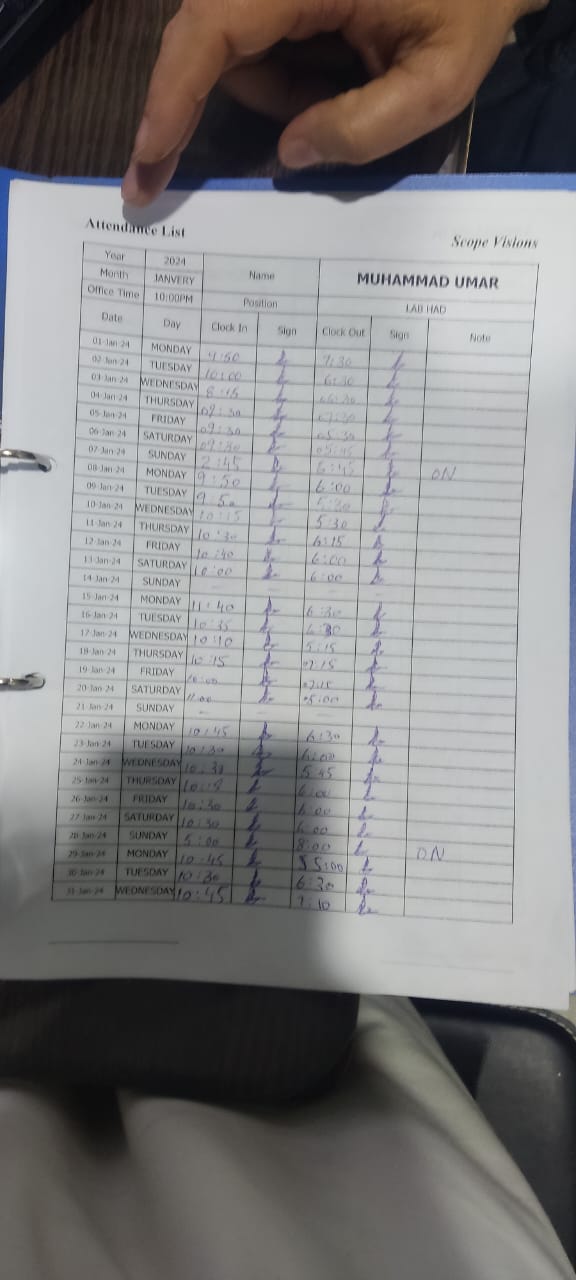 Attendance List
Scope Visions
Year 2024 Name MUHAMMAD UMAR
Month JANVERY
Office Time 10:00PM Position LAB HAD
Date Day Clock In Sign Clock Out Sign Note
01-Jan-24 MONDAY 9:50 7:30
02-Jan-24 TUESDAY 10:00 6:30
03-Jan-24 WEDNESDAY 8:45 06:30
04-Jan-24 THURSDAY 09:30 07:30
05-Jan-24 FRIDAY 09:30 05:30
06-Jan-24 SATURDAY 09:30 05:45
07-Jan-24 SUNDAY 2:45 6:45 ON
08-Jan-24 MONDAY 9:50 6:00
09-Jan-24 TUESDAY 9:50 5:30
10-Jan-24 WEDNESDAY 10:15 5:30
11-Jan-24 THURSDAY 10:30 6:15
12-Jan-24 FRIDAY 10:40 6:00
13-Jan-24 SATURDAY 10:00 6:00
14-Jan-24 SUNDAY
15-Jan-24 MONDAY 11:40 6:30
16-Jan-24 TUESDAY 10:35 6:30
17-Jan-24 WEDNESDAY 10:10 5:15
18-Jan-24 THURSDAY 10:15 07:15
19-Jan-24 FRIDAY 10:00 07:15
20-Jan-24 SATURDAY 11:00 05:00
21-Jan-24 SUNDAY
22-Jan-24 MONDAY 10:45 6:30
23-Jan-24 TUESDAY 10:30 6:00
24-Jan-24 WEDNESDAY 10:30 5:45
25-Jan-24 THURSDAY 6:00
26-Jan-24 FRIDAY 10:30 6:00
27-Jan-24 SATURDAY 10:30 6:00
28-Jan-24 SUNDAY 5:00 8:00 ON
29-Jan-24 MONDAY 10:45 5:00
30-Jan-24 TUESDAY 10:30 6:30
31-Jan-24 WEDNESDAY 10:45 7:10